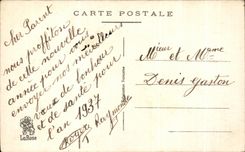 CARTE POSTALE
cher Parent
nous proffiton
de cette nouvelle
année pour vous
envoyer nos meilleur
vœux de bonheur
et de santé pour
l'an 1937
Roger Raymonde
Mieur et Mame
Denis Gaston